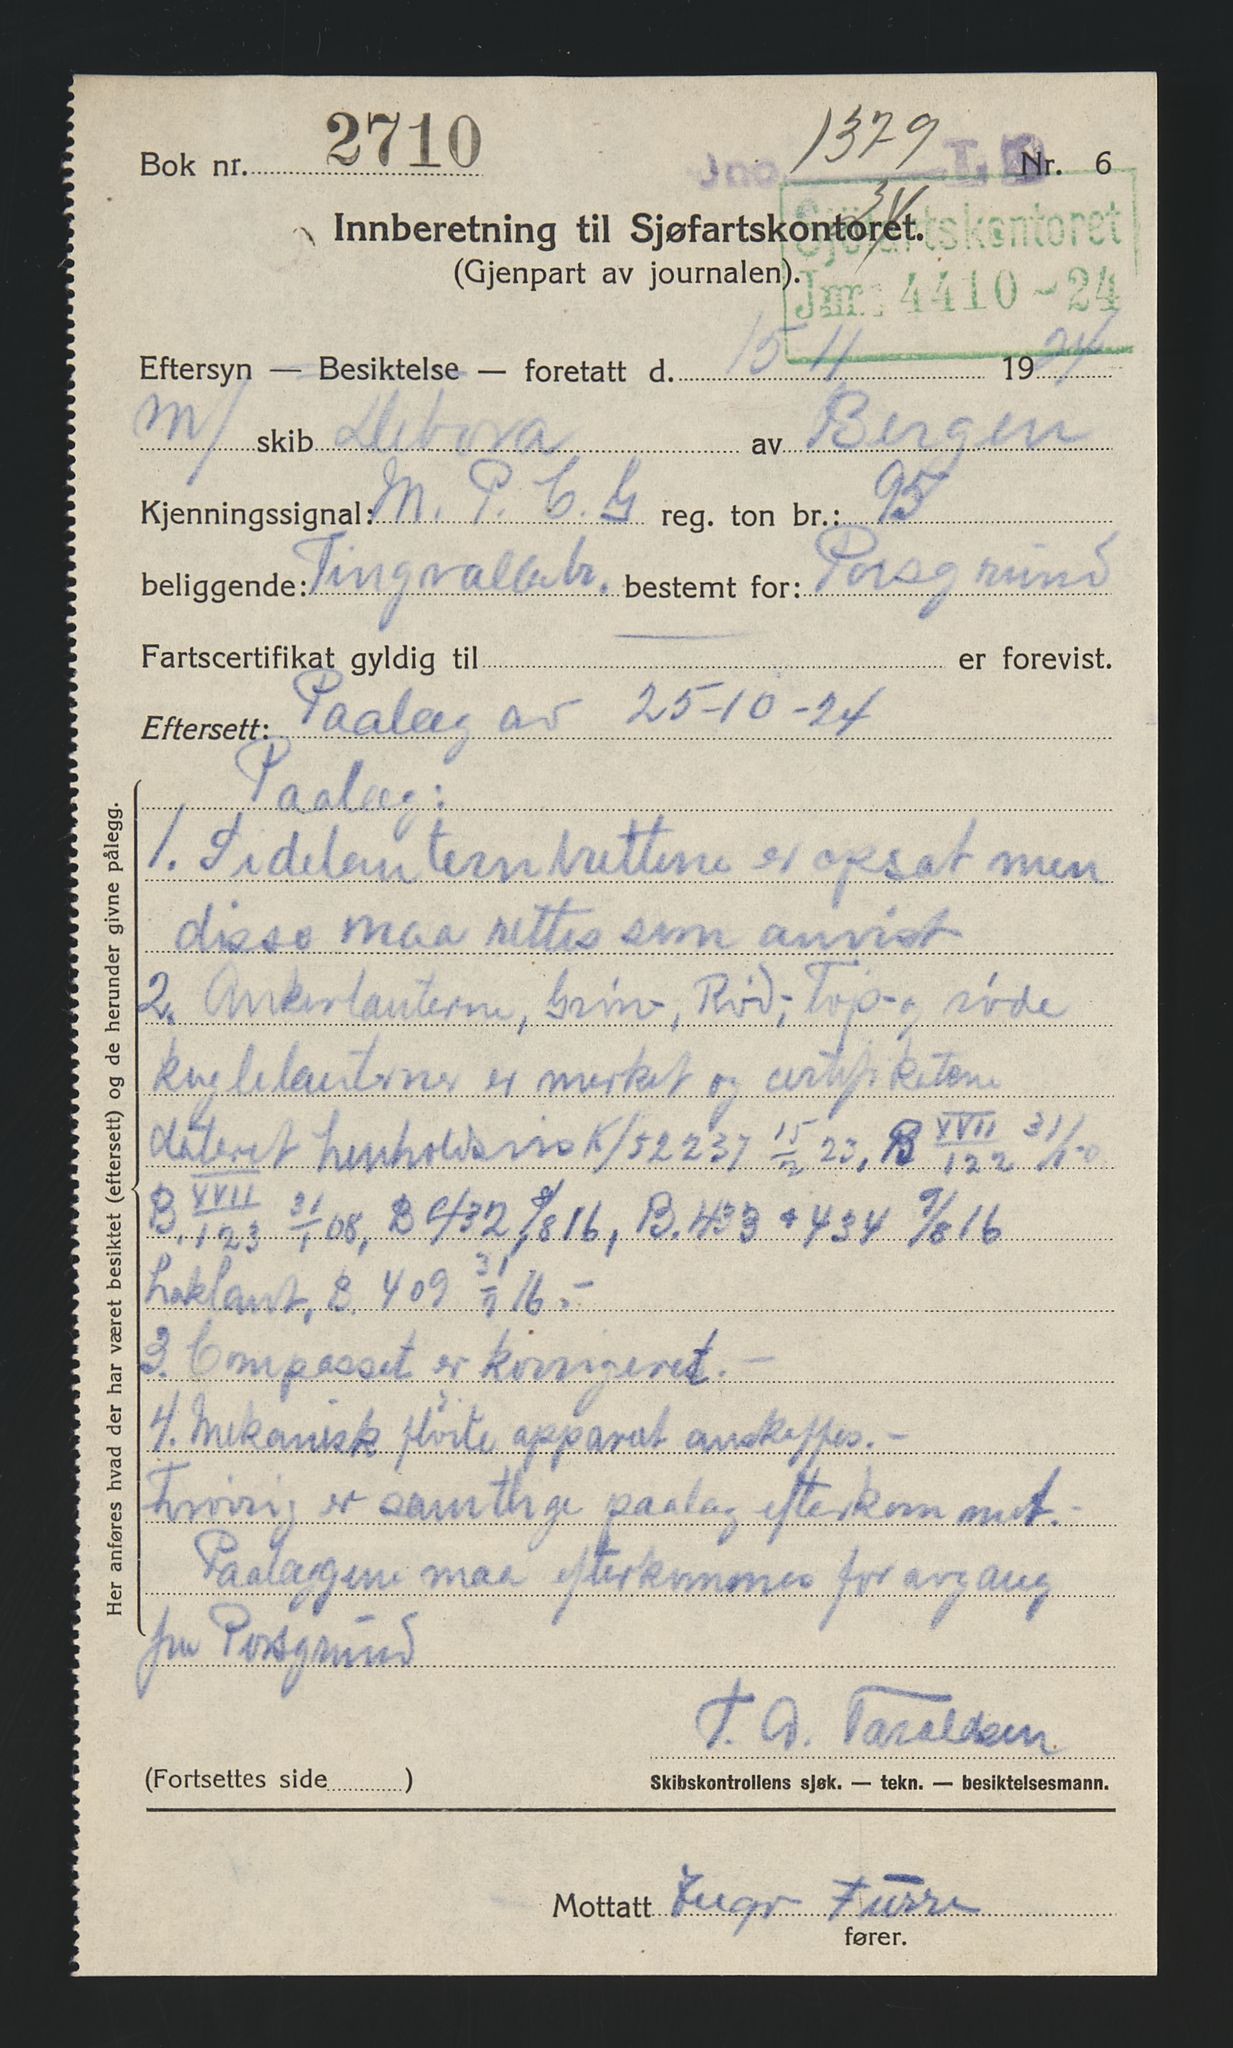 Bok nr. 2710
Jno. 1379 I. D Nr. 6
Innberetning til Sjøfartskontoret.
(Gjenpart av journalen).
Sjöfartskontoret
Jnr: 4410-24
Eftersyn — Besiktelse — foretatt d. 15 11 1924
m/ skib Debora av Bergen
Kjenningssignal: M. P. C. G reg. ton br.: 95
beliggende: Tingvallabr. bestemt for: Porsgrund
Fartscertifikat gyldig til — er forevist.
Eftersett: Paalæg av 25-10-24
Her anføres hvad der har været besiktet (eftersett) og de herunder givne pålegg.
Paalæg:
1. Sidelanternbrettene er opsat men
disse maa rettes som anvist
2. Ankerlanterne, Grön-, Röd-, Top- og röde
kuglelanterner er merket og certifikatene
dateret henholdsvis K/52237 15/2 23, B XVII/122 31/1
B. XVII/123 31/1 08, B 432 9/8 16, B. 433 & 434 9/8 16
Heklant, B. 409 31/7 16.-
3. Compasset er korrigeret.-
4. Mekanisk flöite apparat anskaffes.-
Forövrig er samtlige paalæg efterkommet.-
Paalæggene maa efterkommes for avgang
fra Porsgrund
T. A. Taraldsen
(Fortsettes side )
Skibskontrollens sjøk. — tekn. — besiktelsesmann.
Mottatt Ingv Furre
fører.